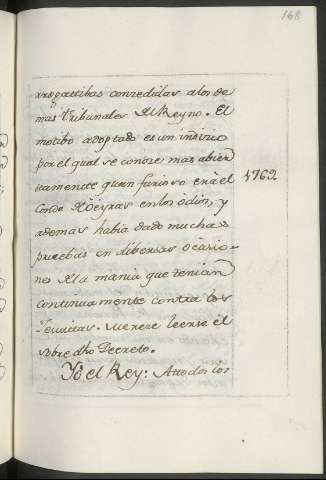 168
rrogatibas conzedidas a los de
mas tribunales del Reyno. El
motibo adoptado es un indizio
por el qual se conoze mas abier
tamente quan furioso era el
Conde de Oeyras en los odios, y
ademas habia dado muchas
pruebas en dibersas ocasio-
nes de la mania que tenian
continuamente contra los
Jesuitas. Mereze leerse el
sobre dho Decreto.
Yo el Rey: A todos los
1762